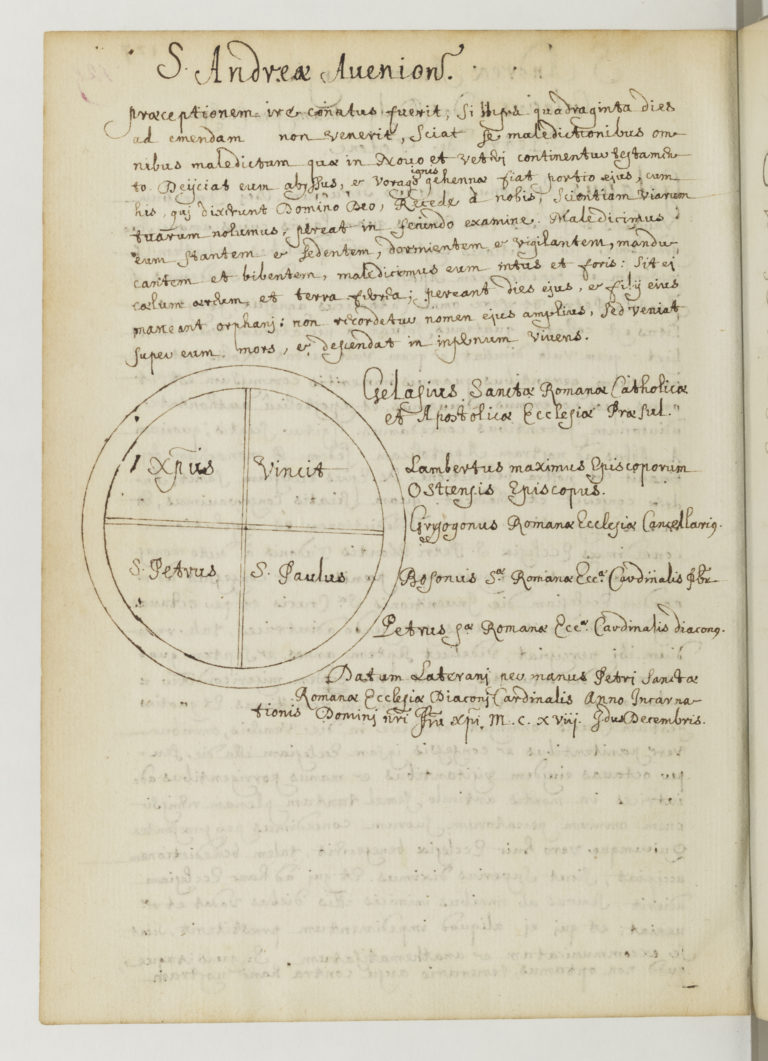 S. Andreæ Avenion.
præceptionem ire conatus fuerit, si infra quadraginta dies
ad emendam non venerit, sciat se maledictionibus om
nibus maledictum quæ in Novo et Veteri continentur testamen
to. Deijciat eum abyssus, et vorago ignis gehennæ fiat portio ejus, cum
his, qui dixerunt Domino Deo, Recede à nobis, scientiam viarum
tuarum nolumus, pereat in secundo examine. Maledicimus
eum stantem et sedentem, dormientem et vigilantem, mandu
cantem et bibentem, maledicimus eum intus et foris: sit ei
cœlum æreum, et terra ferrea; pereant dies ejus, et filij eius
maneant orphanj: non recordetur nomen ejus amplius, sed veniat
super eum mors, et descendat in infernum vivens.
Gelasius Sanctæ Romanæ Catholicæ
et Apostolicæ Ecclesiæ Præsul.
Xpus Vincit
Lambertus maximus Episcoporum
Ostiensis Episcopus.
Grysogonus Romanæ Ecclesiæ Cancellarius.
S. Petrus S. Paulus
Bosonus Sæ Romanæ Eccæ Cardinalis pbr
Petrus sæ Romanæ Eccæ Cardinalis diaconus.
Datum Lateranj per manus Petri Sanctæ
Romanæ Ecclesiæ Diaconj Cardinalis Anno Incarna
tionis Dominj nri Jhu xpi M. C. XVIIJ. Jdus Decembris.